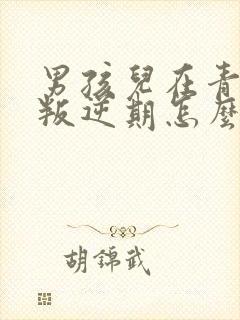 男孩兒在青
叛逆期怎麼
胡錦武